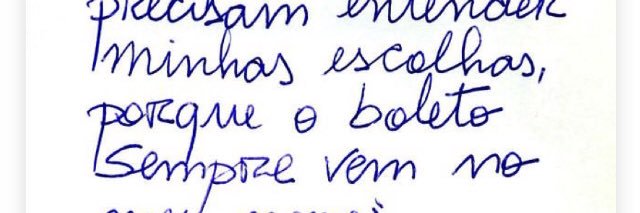 precisam entender
minhas escolhas,
porque o boleto
sempre vem no